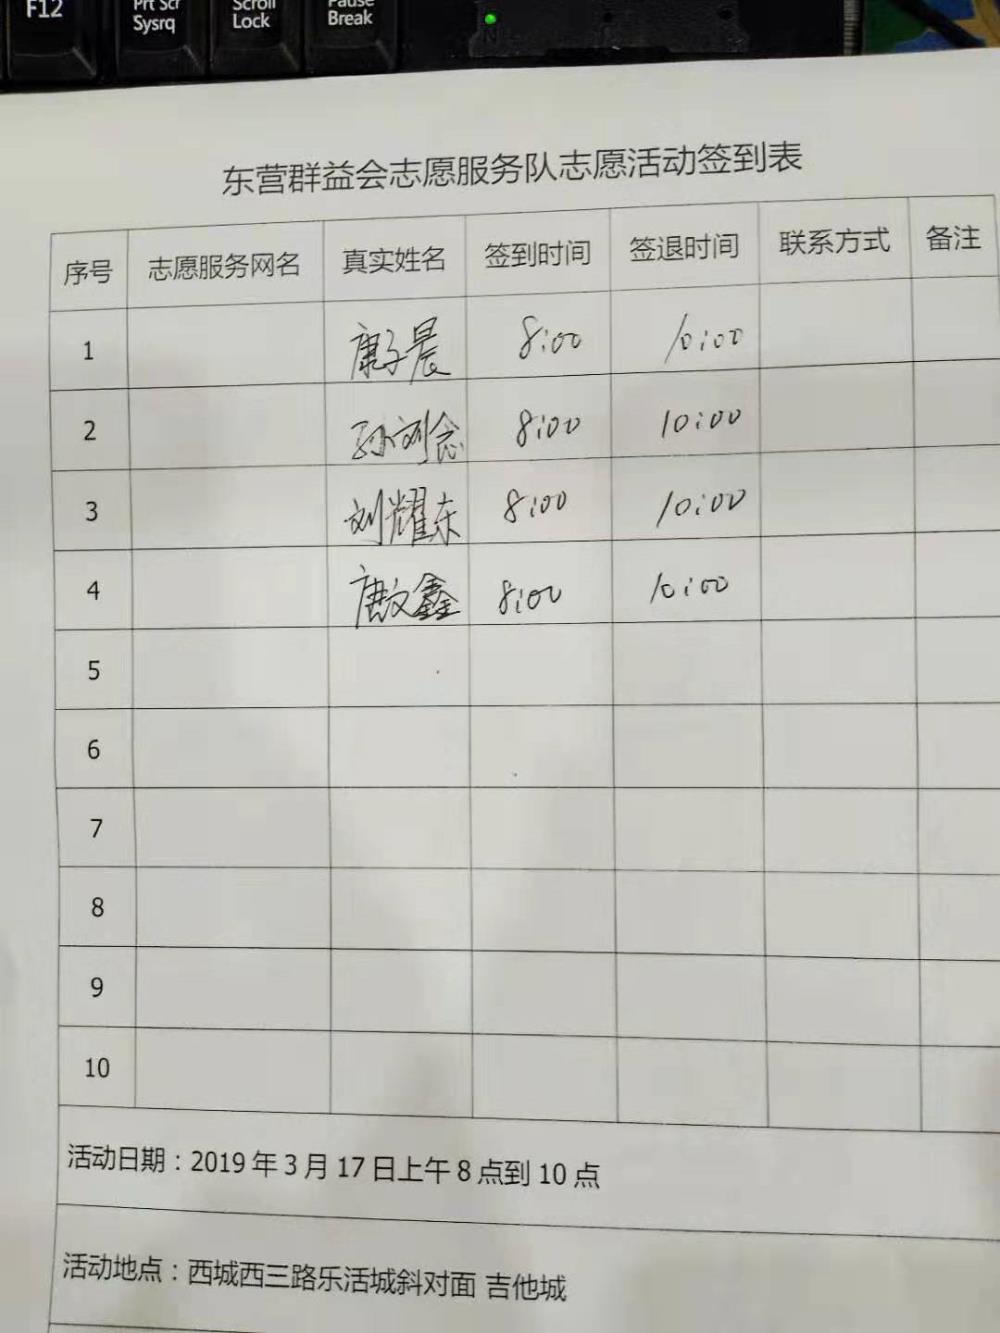 F12
Prt Scr
Sysrq
Scroll
Lock
Pause
Break
东营群益会志愿服务队志愿活动签到表
序号 志愿服务网名 真实姓名 签到时间 签退时间 联系方式 备注
1 康子晨 8:00 10:00
2 孙刘念 8:00 10:00
3 刘耀东 8:00 10:00
4 唐文鑫 8:00 10:00
5
6
7
8
9
10
活动日期：2019年3月17日上午8点到10点
活动地点：西城西三路乐活城斜对面 吉他城